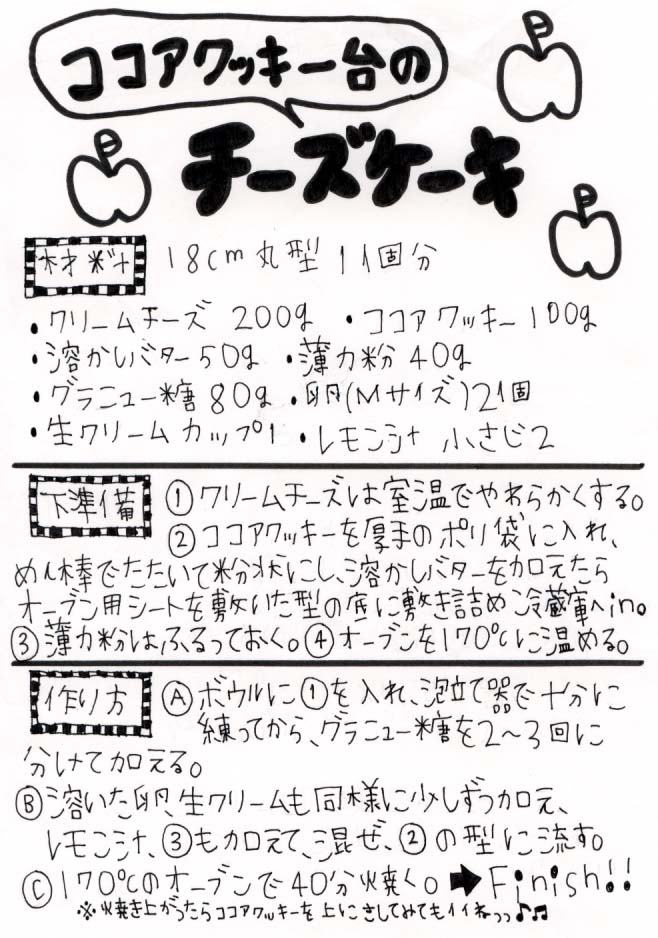 ココアクッキー台の
チーズケーキ
材料 18cm 丸型 1個分
・クリームチーズ 200g ・ココアクッキー 100g
・溶かしバター 50g ・薄力粉 40g
・グラニュー糖 80g ・卵(Mサイズ) 2個
・生クリーム カップ1 ・レモン汁 小さじ2
下準備 ① クリームチーズは室温でやわらかくする。
② ココアクッキーを厚手のポリ袋に入れ、
めん棒でたたいて粉状にし、溶かしバターを加えたら
オーブン用シートを敷いた型の底に敷き詰め冷蔵庫へin。
③ 薄力粉はふるっておく。④ オーブンを170℃に温める。
作り方 Ⓐ ボウルに①を入れ、泡立て器で十分に
練ってから、グラニュー糖を2〜3回に
分けて加える。
Ⓑ 溶いた卵、生クリームも同様に少しずつ加え、
レモン汁、③も加えて、混ぜ、②の型に流す。
Ⓒ 170℃のオーブンで40分焼く。➡ Finish!!
※焼き上がったらココアクッキーを上にさしてみてもイイねっっ♪♫